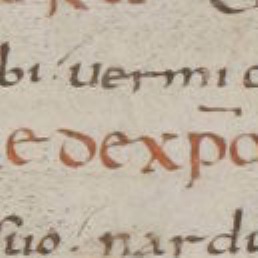 bi. uermi
e dexp̄o
suo. nardu